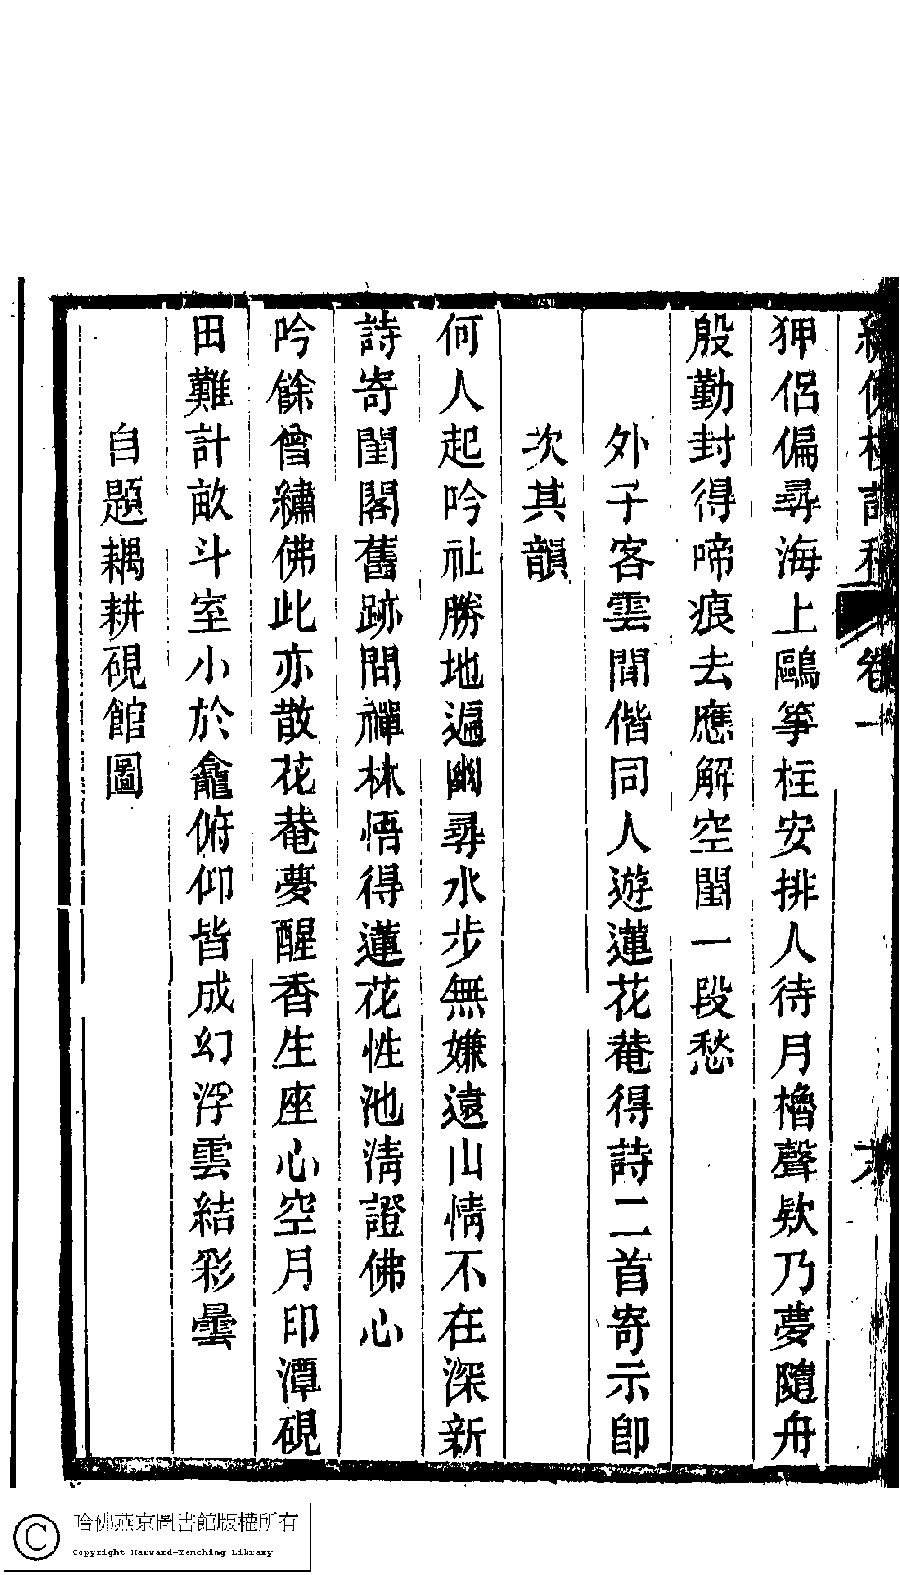 繡佛樓詩稿 卷一 六
狎侶偏尋海上鷗箏柱安排人待月櫓聲欸乃夢隨舟
殷勤封得啼痕去應解空閨一段愁
外子客雲間偕同人遊蓮花菴得詩二首寄示卽
次其韻
何人起吟社勝地遍幽尋水步無嫌遠山情不在深新
詩寄閨閣舊跡問禪林悟得蓮花性池淸證佛心
吟餘曾繡佛此亦散花菴夢醒香生座心空月印潭硯
田難計畝斗室小於龕俯仰皆成幻浮雲結彩曇
自題耦耕硯館圖
哈佛燕京圖書館版權所有
Copyright Harvard-Yenching Library